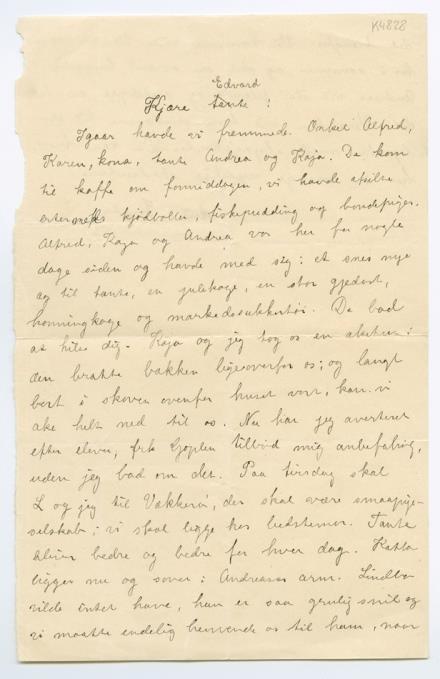 K4828
Edvard
Kjære tante!
Igaar havde vi fremmede. Onkel Alfred,
Karen, kona, tante Andrea og Kaja. De kom
til kaffe om formiddagen, vi havde
kjødboller, fiskepudding og bondepiger.
Alfred, Kaja og Andrea var her for nogle
dage siden og havde med sig: et snes nye
æg til tante, en julekage, en stor gjedost,
honningkage og markedssukkertøi. De bad
at hilse dig. Kaja og jeg tog os en aketur i
den bratte bakken ligeoverfor os; og langt
bort i skoven ovenfor huset vort, kan vi
ake helt ned til os. Nu har jeg averteret
efter elever, frk Gjoplen tilbød mig anbefaling,
uden jeg bad om det. Paa tirsdag skal
L og jeg til Vækkerø, der skal være smaapige-
selskab; vi skal ligge hos bedstemor. Tante
bliver bedre og bedre for hver dag. Katta
ligger nu og sover i Andreas arm. Lindbo
vilde intet have, han er saa grulig snil og
vi maatte endelig henvende os til ham, naar